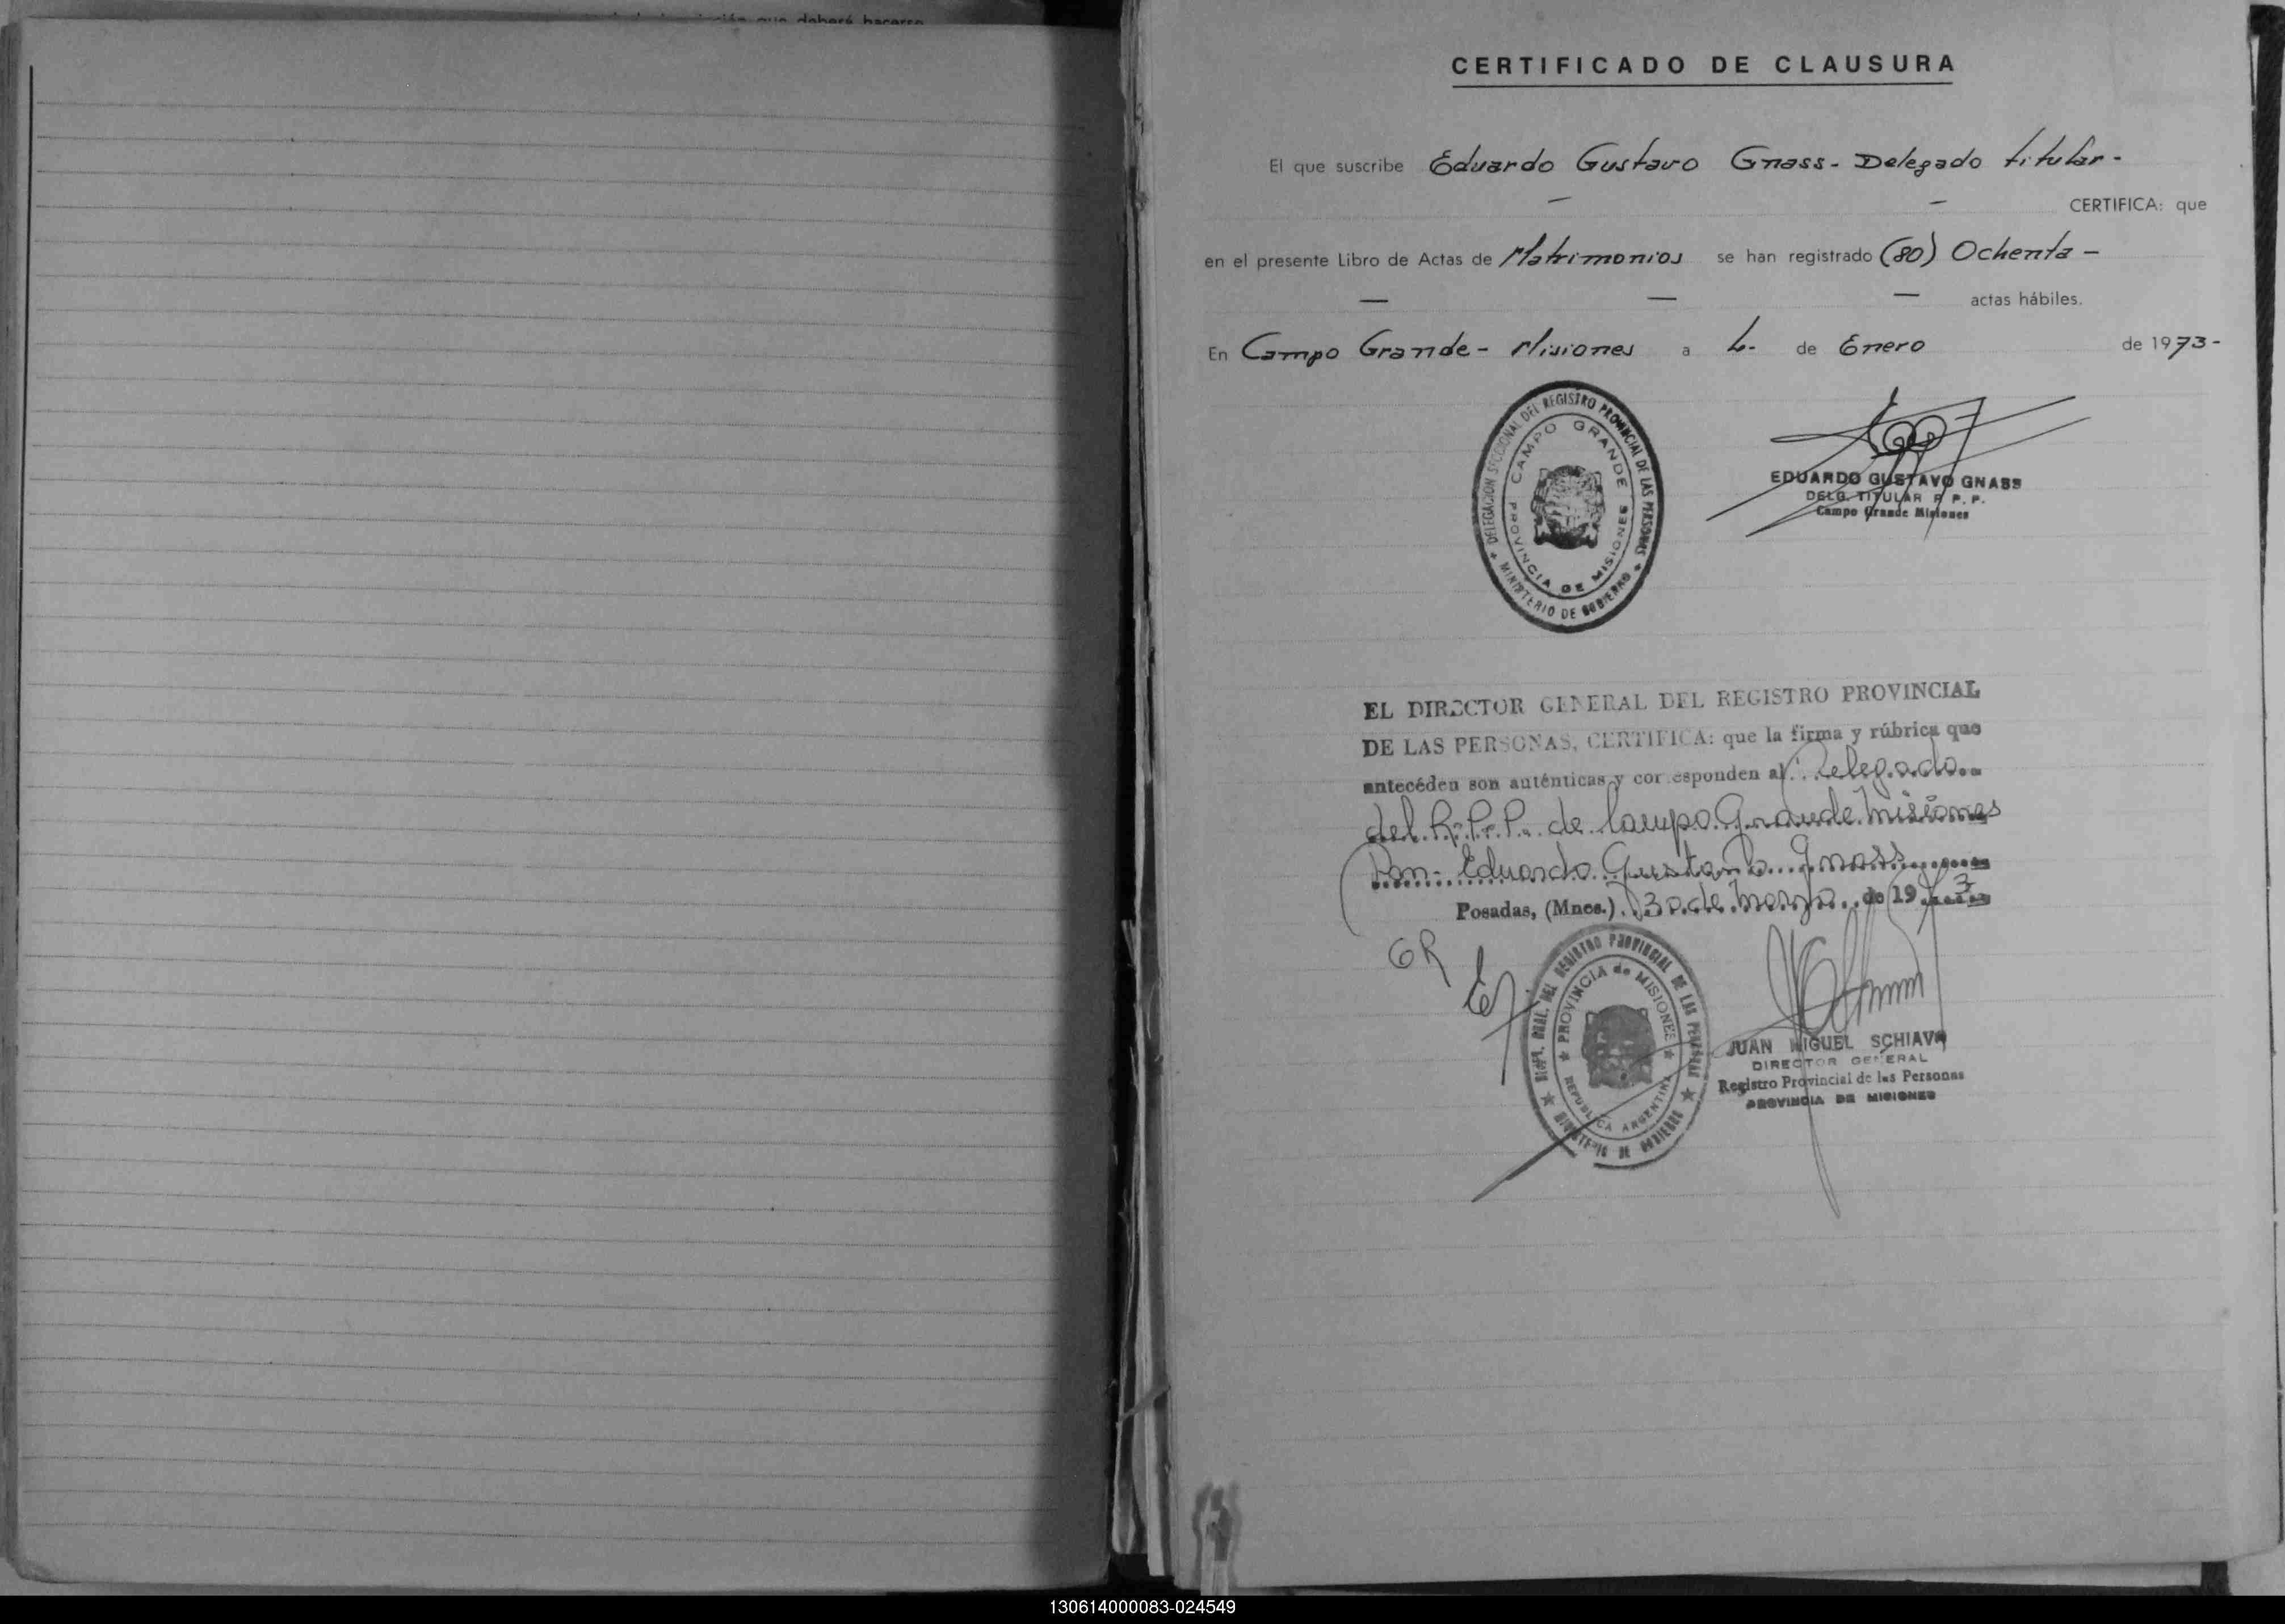 que deberá hacerse
CERTIFICADO DE CLAUSURA
El que suscribe Eduardo Gustavo Gnass - Delegado titular -
— — CERTIFICA: que
en el presente Libro de Actas de Matrimonios se han registrado (80) Ochenta —
— — — actas hábiles.
En Campo Grande - Misiones a de Enero de 1973 -
DELEGACION SECCIONAL DEL REGISTRO PROVINCIAL DE LAS PERSONAS
MINISTERIO DE GOBIERNO
CAMPO GRANDE
PROVINCIA DE MISIONES
EDUARDO GUSTAVO GNASS
DELG. TITULAR R. P. P.
Campo Grande Misiones
EL DIRECTOR GENERAL DEL REGISTRO PROVINCIAL
DE LAS PERSONAS, CERTIFICA: que la firma y rúbrica que
antecéden son auténticas y corresponden al Delegado
del R.P.P. de Campo Grande Misiones
Don - Eduardo Gustavo Gnass
Posadas, (Mnes.) 30 de Marzo de 1973
GR
DIREC. GRAL. DEL REGISTRO PROVINCIAL DE LAS PERSONAS
MINISTERIO DE GOBIERNO
PROVINCIA de MISIONES
REPUBLICA ARGENTINA
JUAN MIGUEL SCHIAVO
DIRECTOR GENERAL
Registro Provincial de las Personas
PROVINCIA DE MISIONES
130614000083-024549